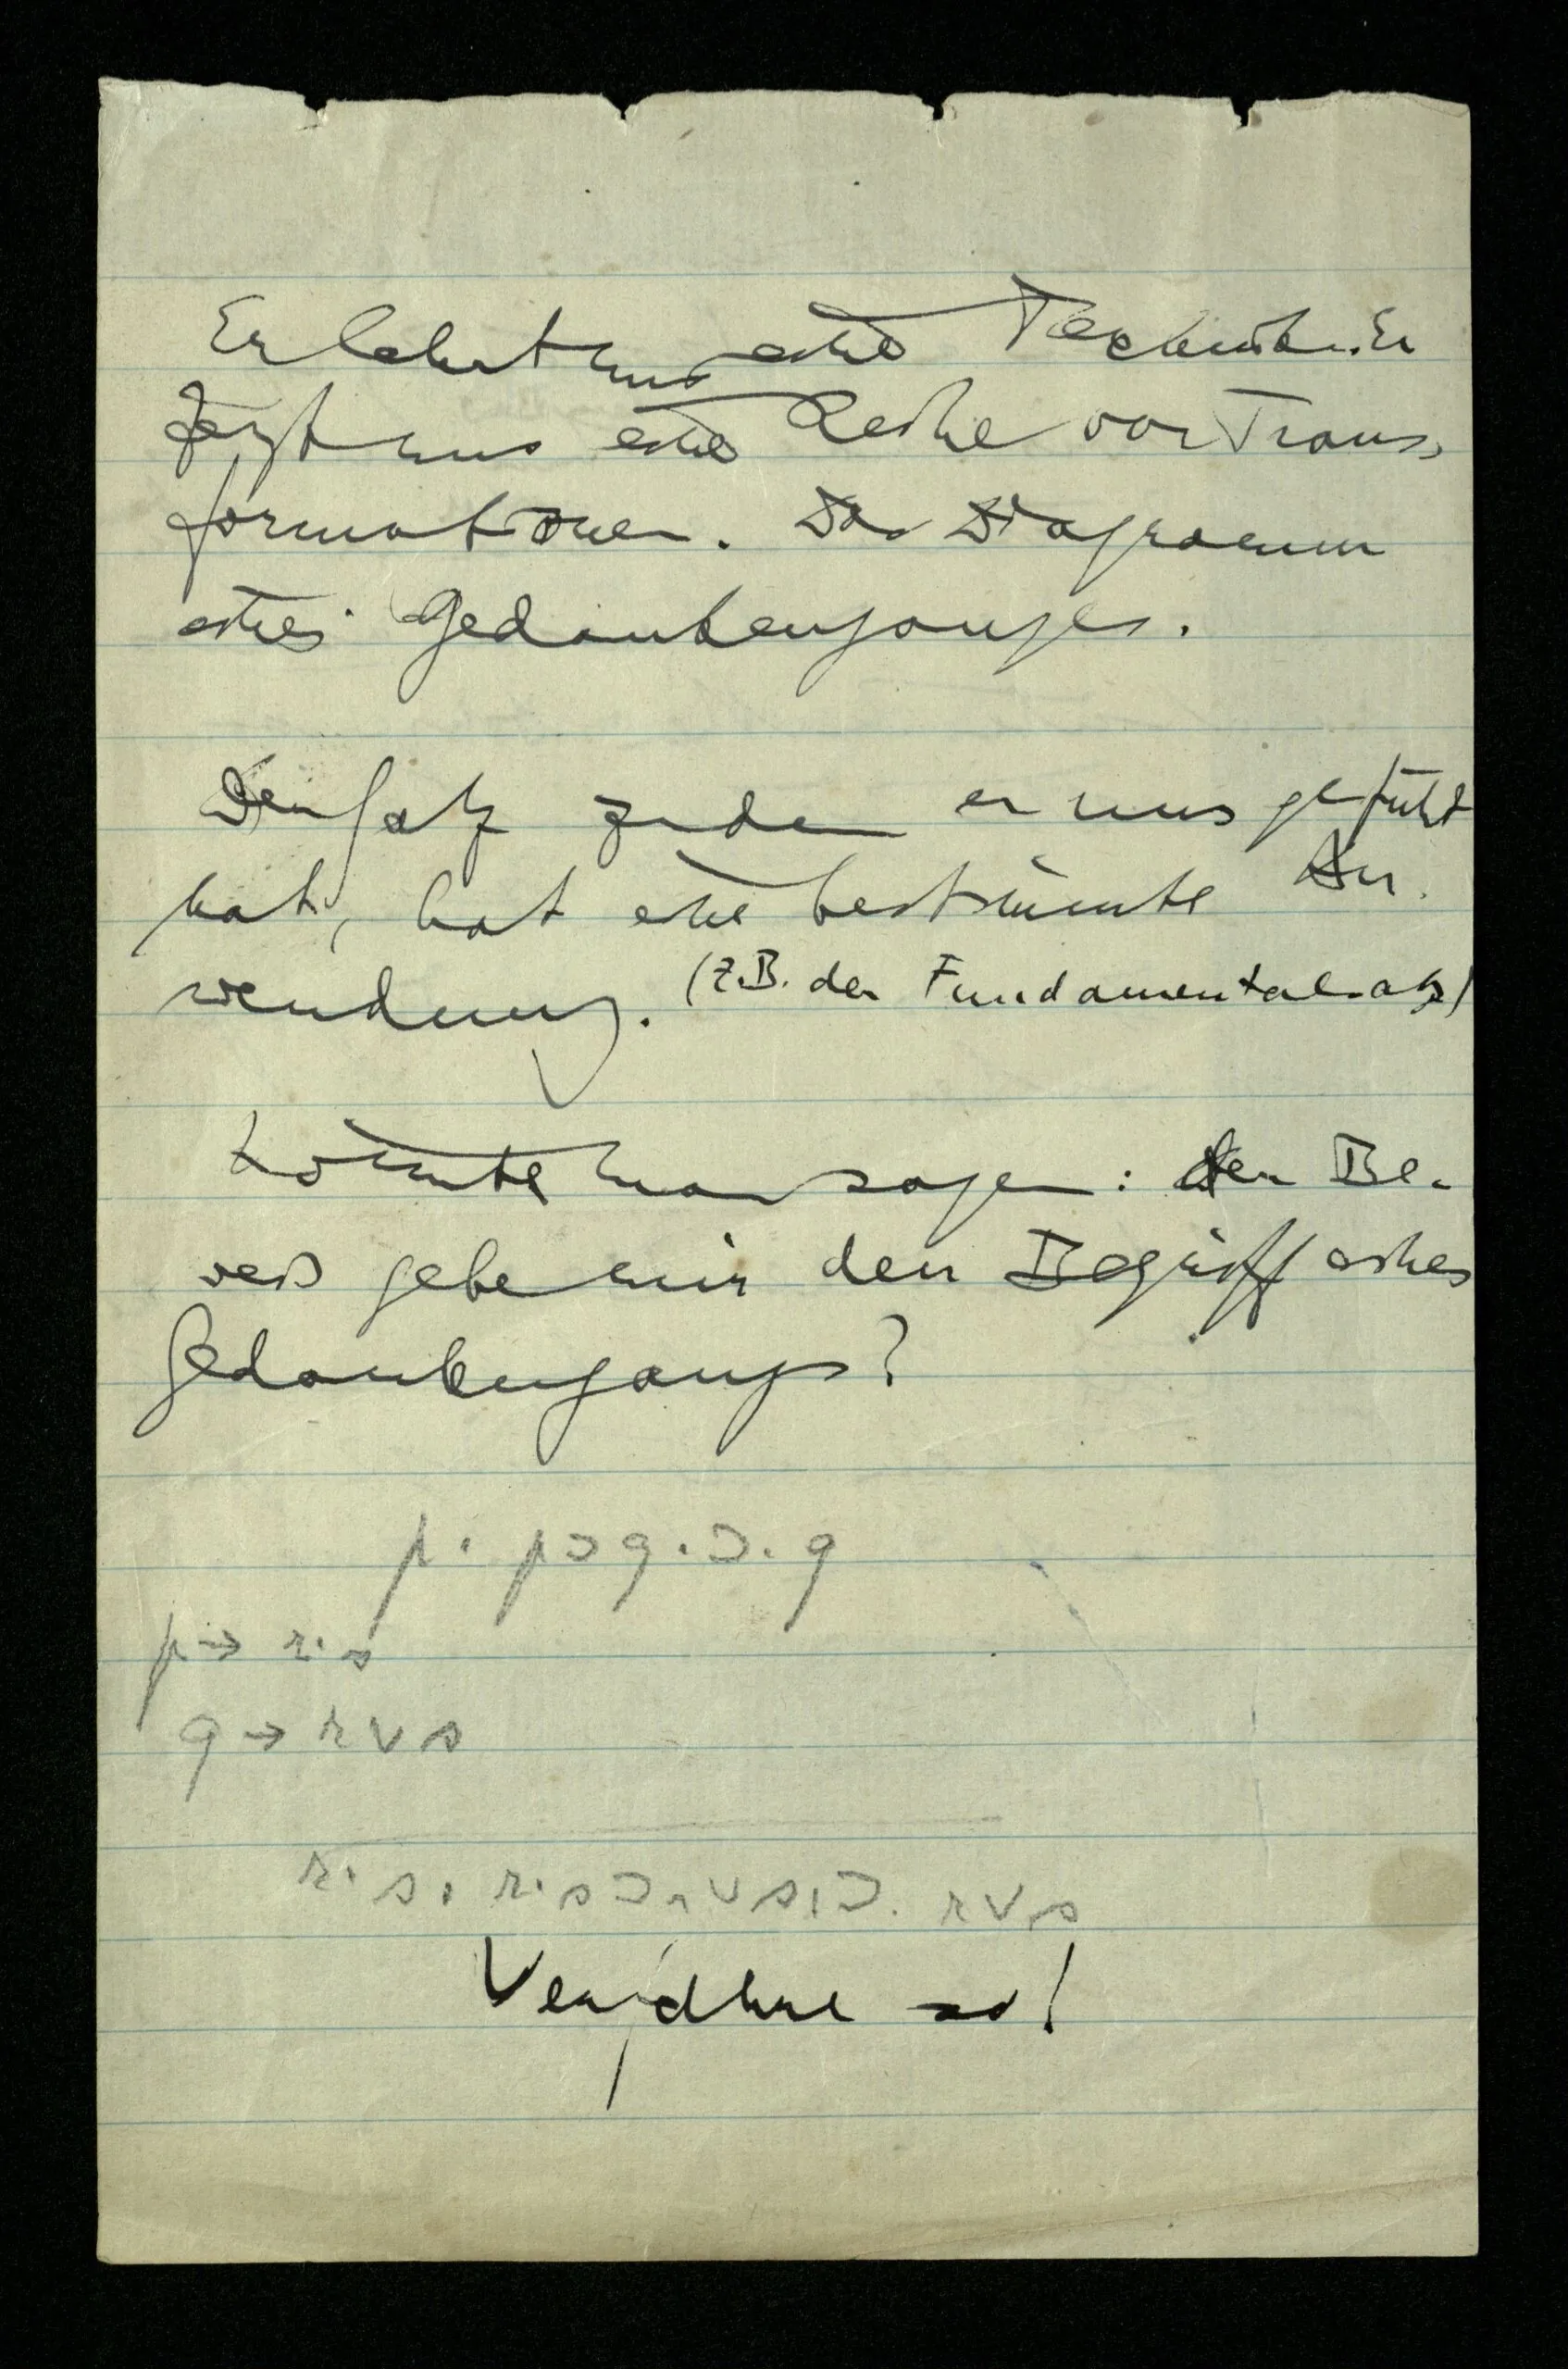 Er lehrt uns eine Technik. Er
zeigt uns eine Reihe von Trans-
formationen. Das Diagramm
eines Gedankenganges.
Der Satz zu dem er uns geführt
hat, hat eine bestimmte An-
wendung. (Z.B. der Fundamentalsatz)
Könnte man sagen: der Be-
weis gebe mir den Begriff eines
Gedankengangs?
p . p⊃q .⊃. q
p → r·s
q → r∨s
r·s . r·s⊃r∨s .⊃. r∨s
so!